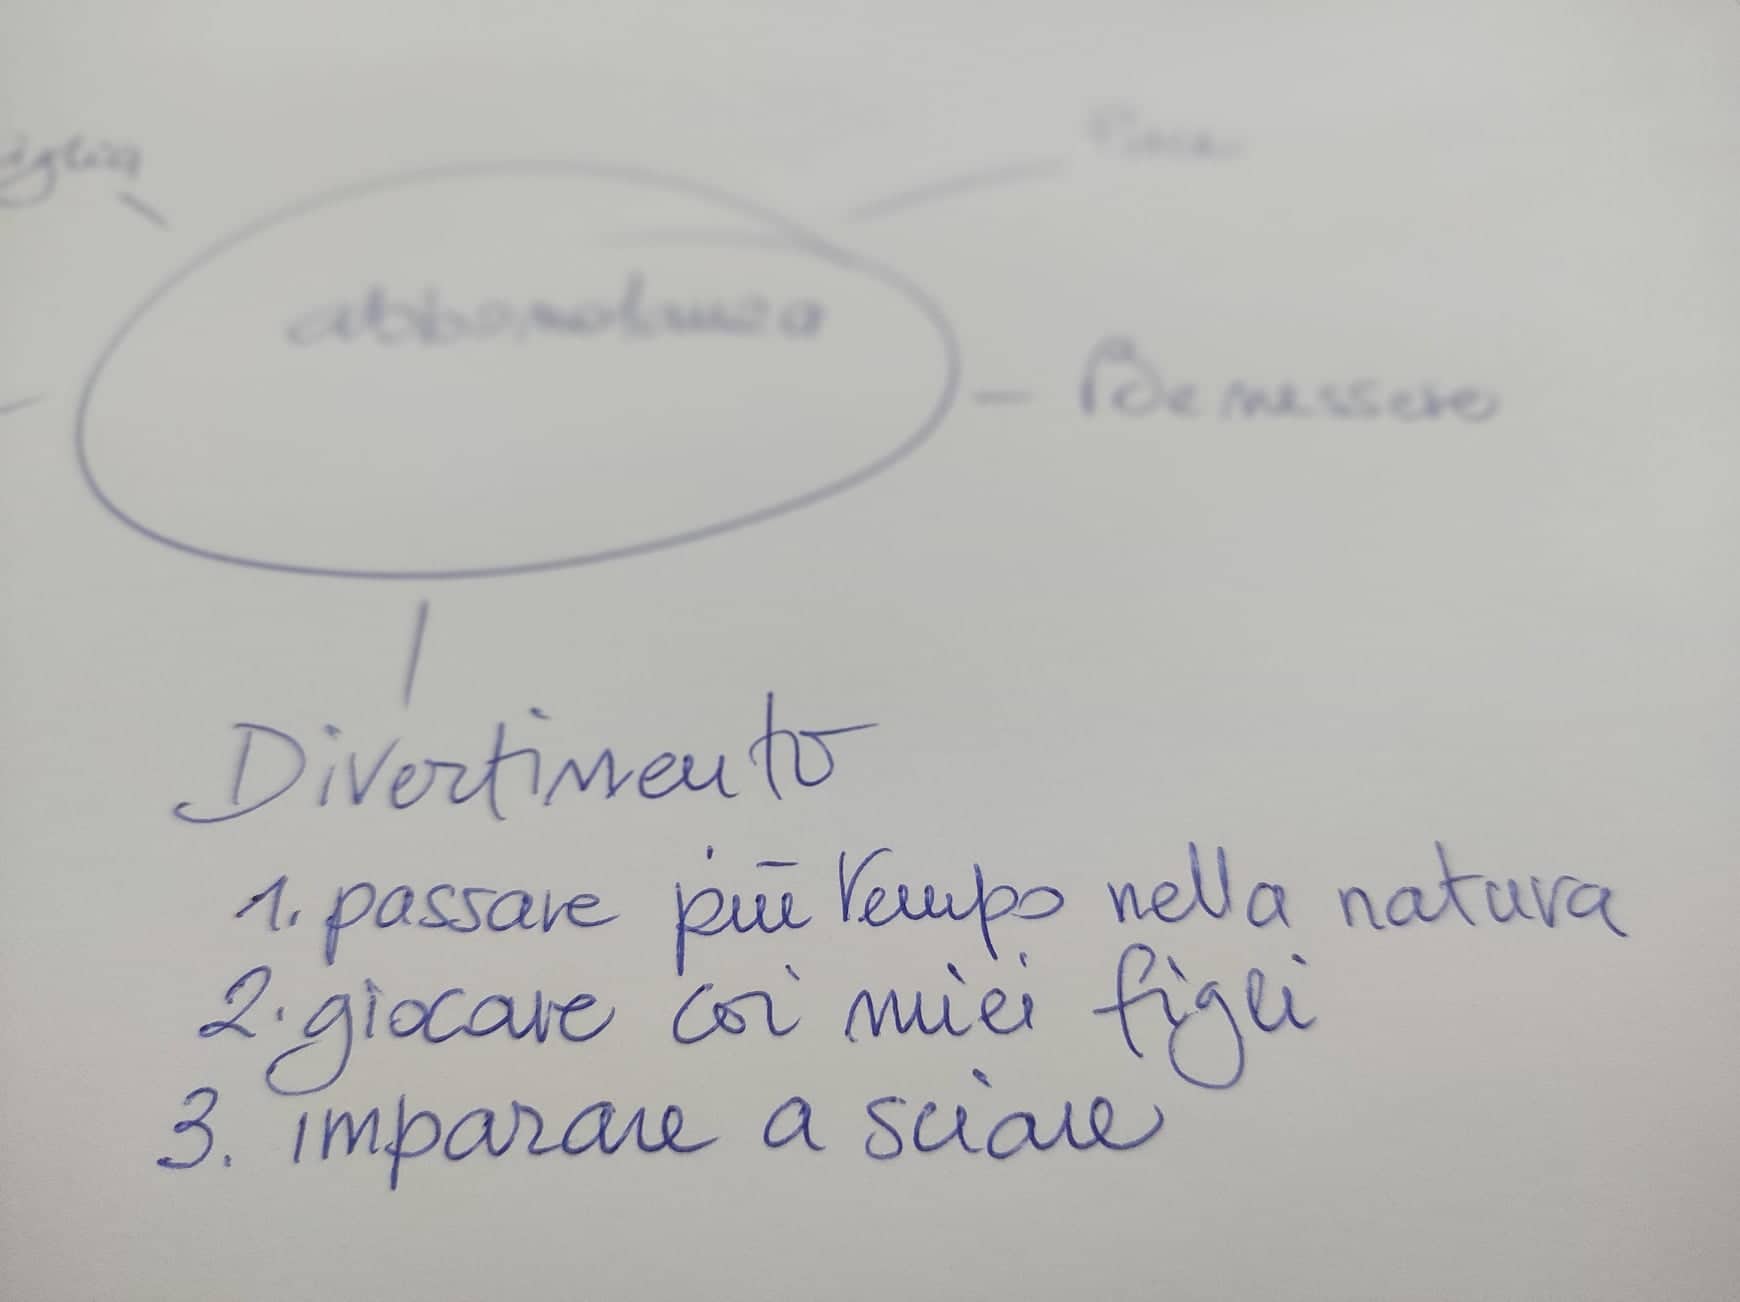 abbondanza
Benessere
Divertimento
1. passare più tempo nella natura
2. giocare coi miei figli
3. imparare a sciare